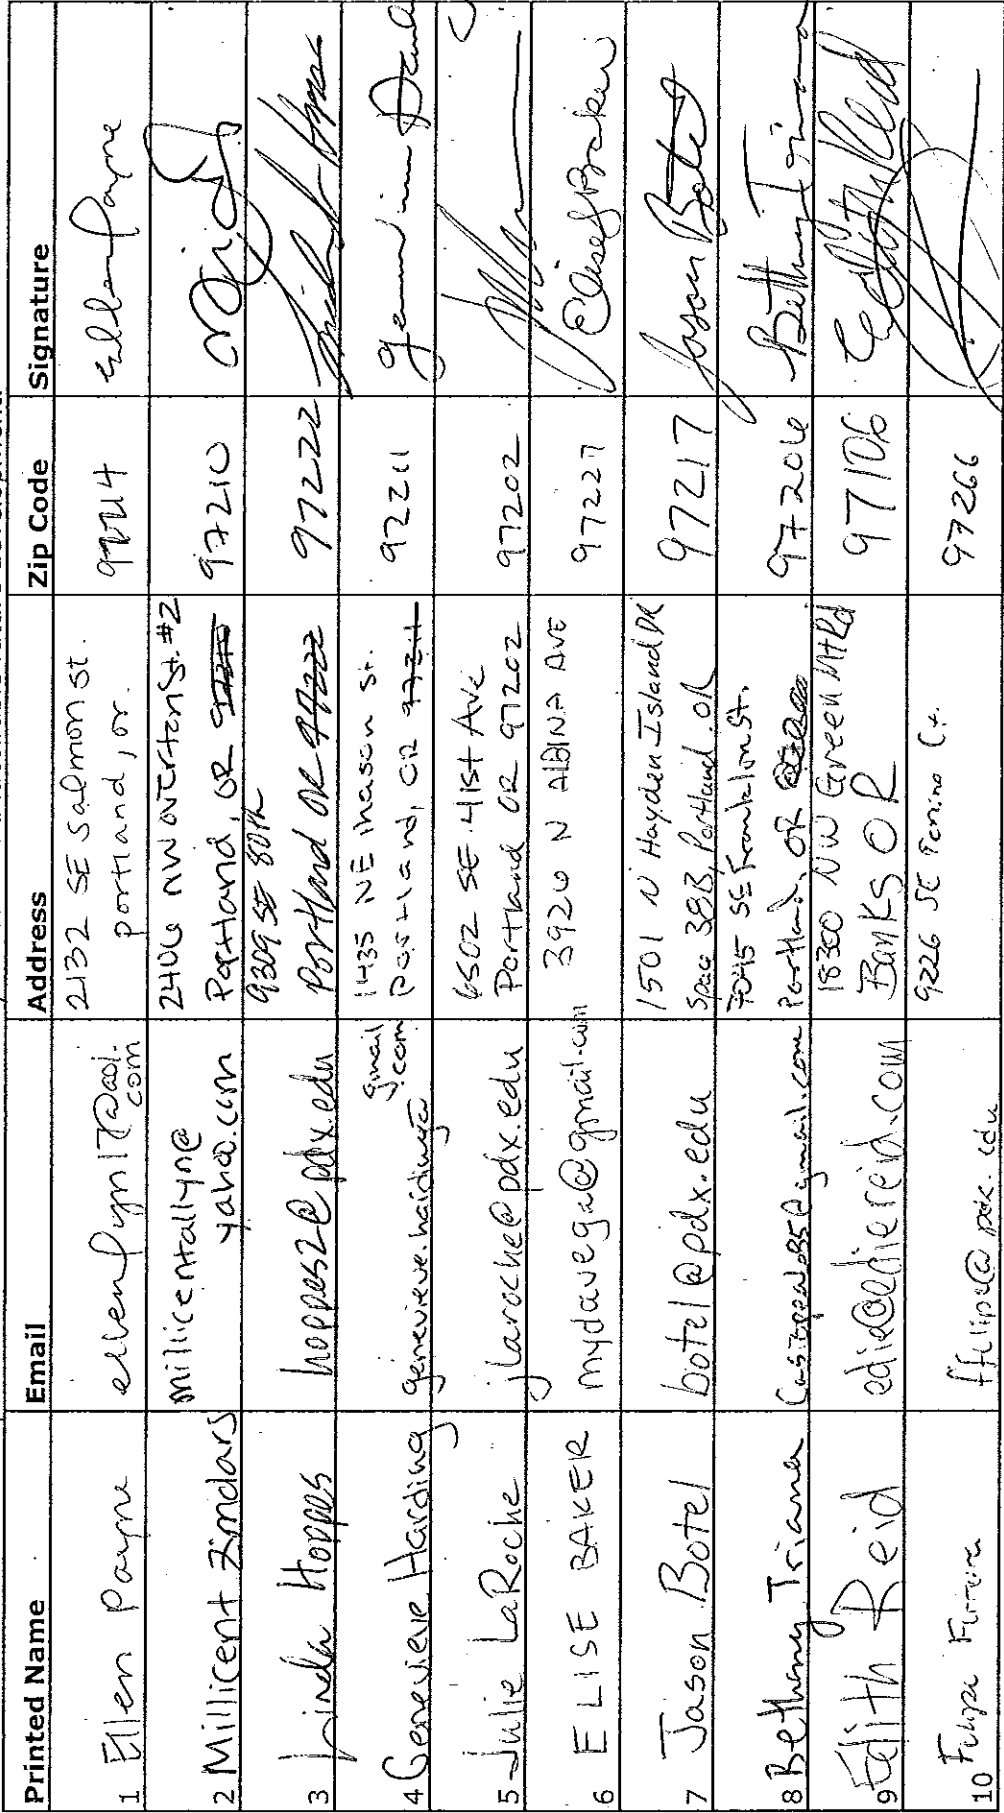 Printed Name Email Address Zip Code Signature
1 Ellen Payne ellenpayn17@aol.com 2132 SE Salmon st. portland, or. 97214 Ellen Payne
2 Millicent Zindars millicentallyn@yahoo.com 2406 NW Overton St. #2 Portland, OR 97210
3 Linda Hoppes hoppes2@pdx.edu 9309 SE 80th Portland OR 97222 97222
4 Genevieve Harding genevieve.harding@gmail.com 1435 NE mason st. portland, OR 97211 97211
5 Julie LaRoche jlaroche@pdx.edu 6502 SE 41st Ave Portland OR 97202 97202
6 ELISE BAKER mydavega@gmail.com 3926 N ALBINA AVE 97227 Elise Baker
7 Jason Botel botel@pdx.edu 1501 N Hayden Island DR Space 38B, Portland, OR 97217 Jason Botel
8 Bethany Triana 7045 SE Franklin St. Portland, OR 97206 Bethany
9 Edith Reid edie@ediereid.com 18300 NW Green Mt Rd Banks OR 97106 Edith Reid
10 Filipe 9226 SE Ct. 97266